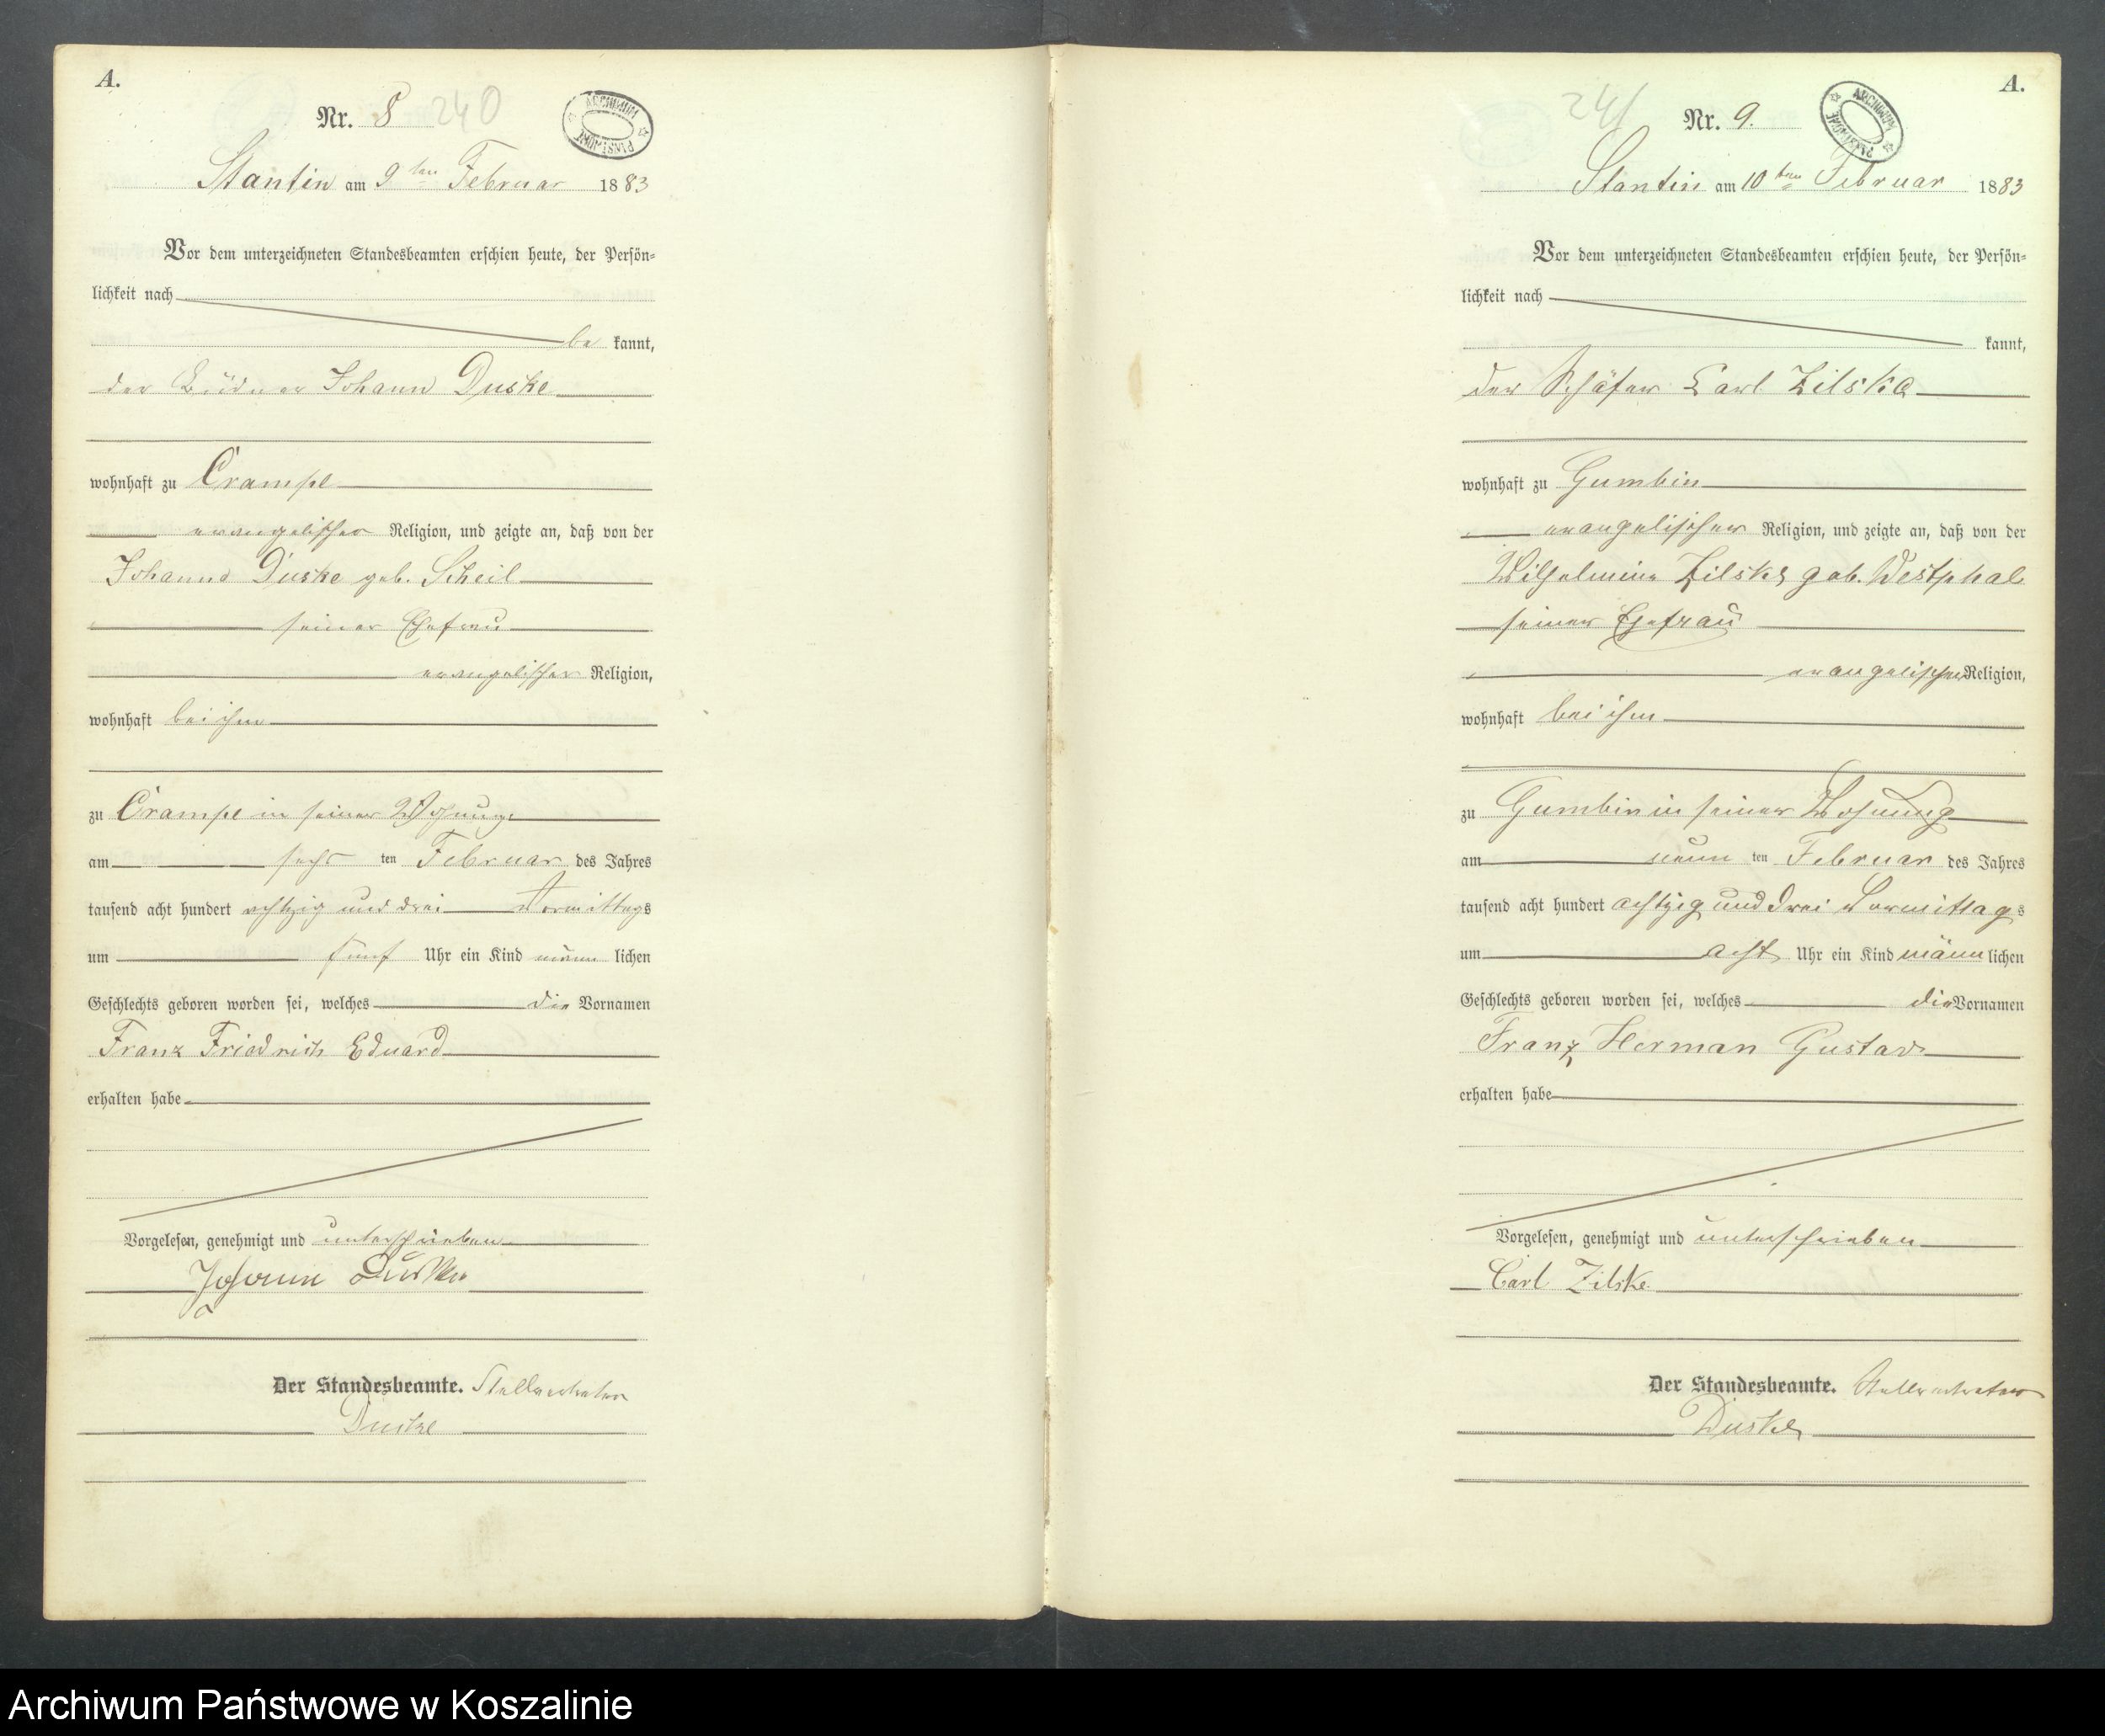 A.
Nr. 8 240
ARCHIWUM PAŃSTWOWE
Stantin am 9ten Februar 1883
Vor dem unterzeichneten Standesbeamten erschien heute, der Persön-
lichkeit nach
be kannt,
der Büdner Johann Duske
wohnhaft zu Crampe
evangelischer Religion, und zeigte an, daß von der
Johanne Duske geb. Scheil
seiner Ehefrau
evangelischer Religion,
wohnhaft bei ihm
zu Crampe in seiner Wohnung
am sechs ten Februar des Jahres
tausend acht hundert achtzig und drei Vormittags
um fünf Uhr ein Kind männ lichen
Geschlechts geboren worden sei, welches die Vornamen
Franz Friedrich Eduard
erhalten habe
Vorgelesen, genehmigt und unterschrieben
Johann Duske
Der Standesbeamte. Stellvertreter
Duske
A.
241 Nr. 9.
ARCHIWUM PAŃSTWOWE
Stantin am 10ten Februar 1883
Vor dem unterzeichneten Standesbeamten erschien heute, der Persön-
lichkeit nach
kannt,
der Schäfer Carl Zilske
wohnhaft zu Gumbin
evangelischer Religion, und zeigte an, daß von der
Wilhelmine Zilske geb. Westphal
seiner Ehefrau
evangelischer Religion,
wohnhaft bei ihm
zu Gumbin in seiner Wohnung
am neun ten Februar des Jahres
tausend acht hundert achtzig und drei Vormittags
um acht Uhr ein Kind männ lichen
Geschlechts geboren worden sei, welches die Vornamen
Franz Herman Gustav
erhalten habe
Vorgelesen, genehmigt und unterschrieben
Carl Zilske
Der Standesbeamte. Stellvertreter
Duske
Archiwum Państwowe w Koszalinie